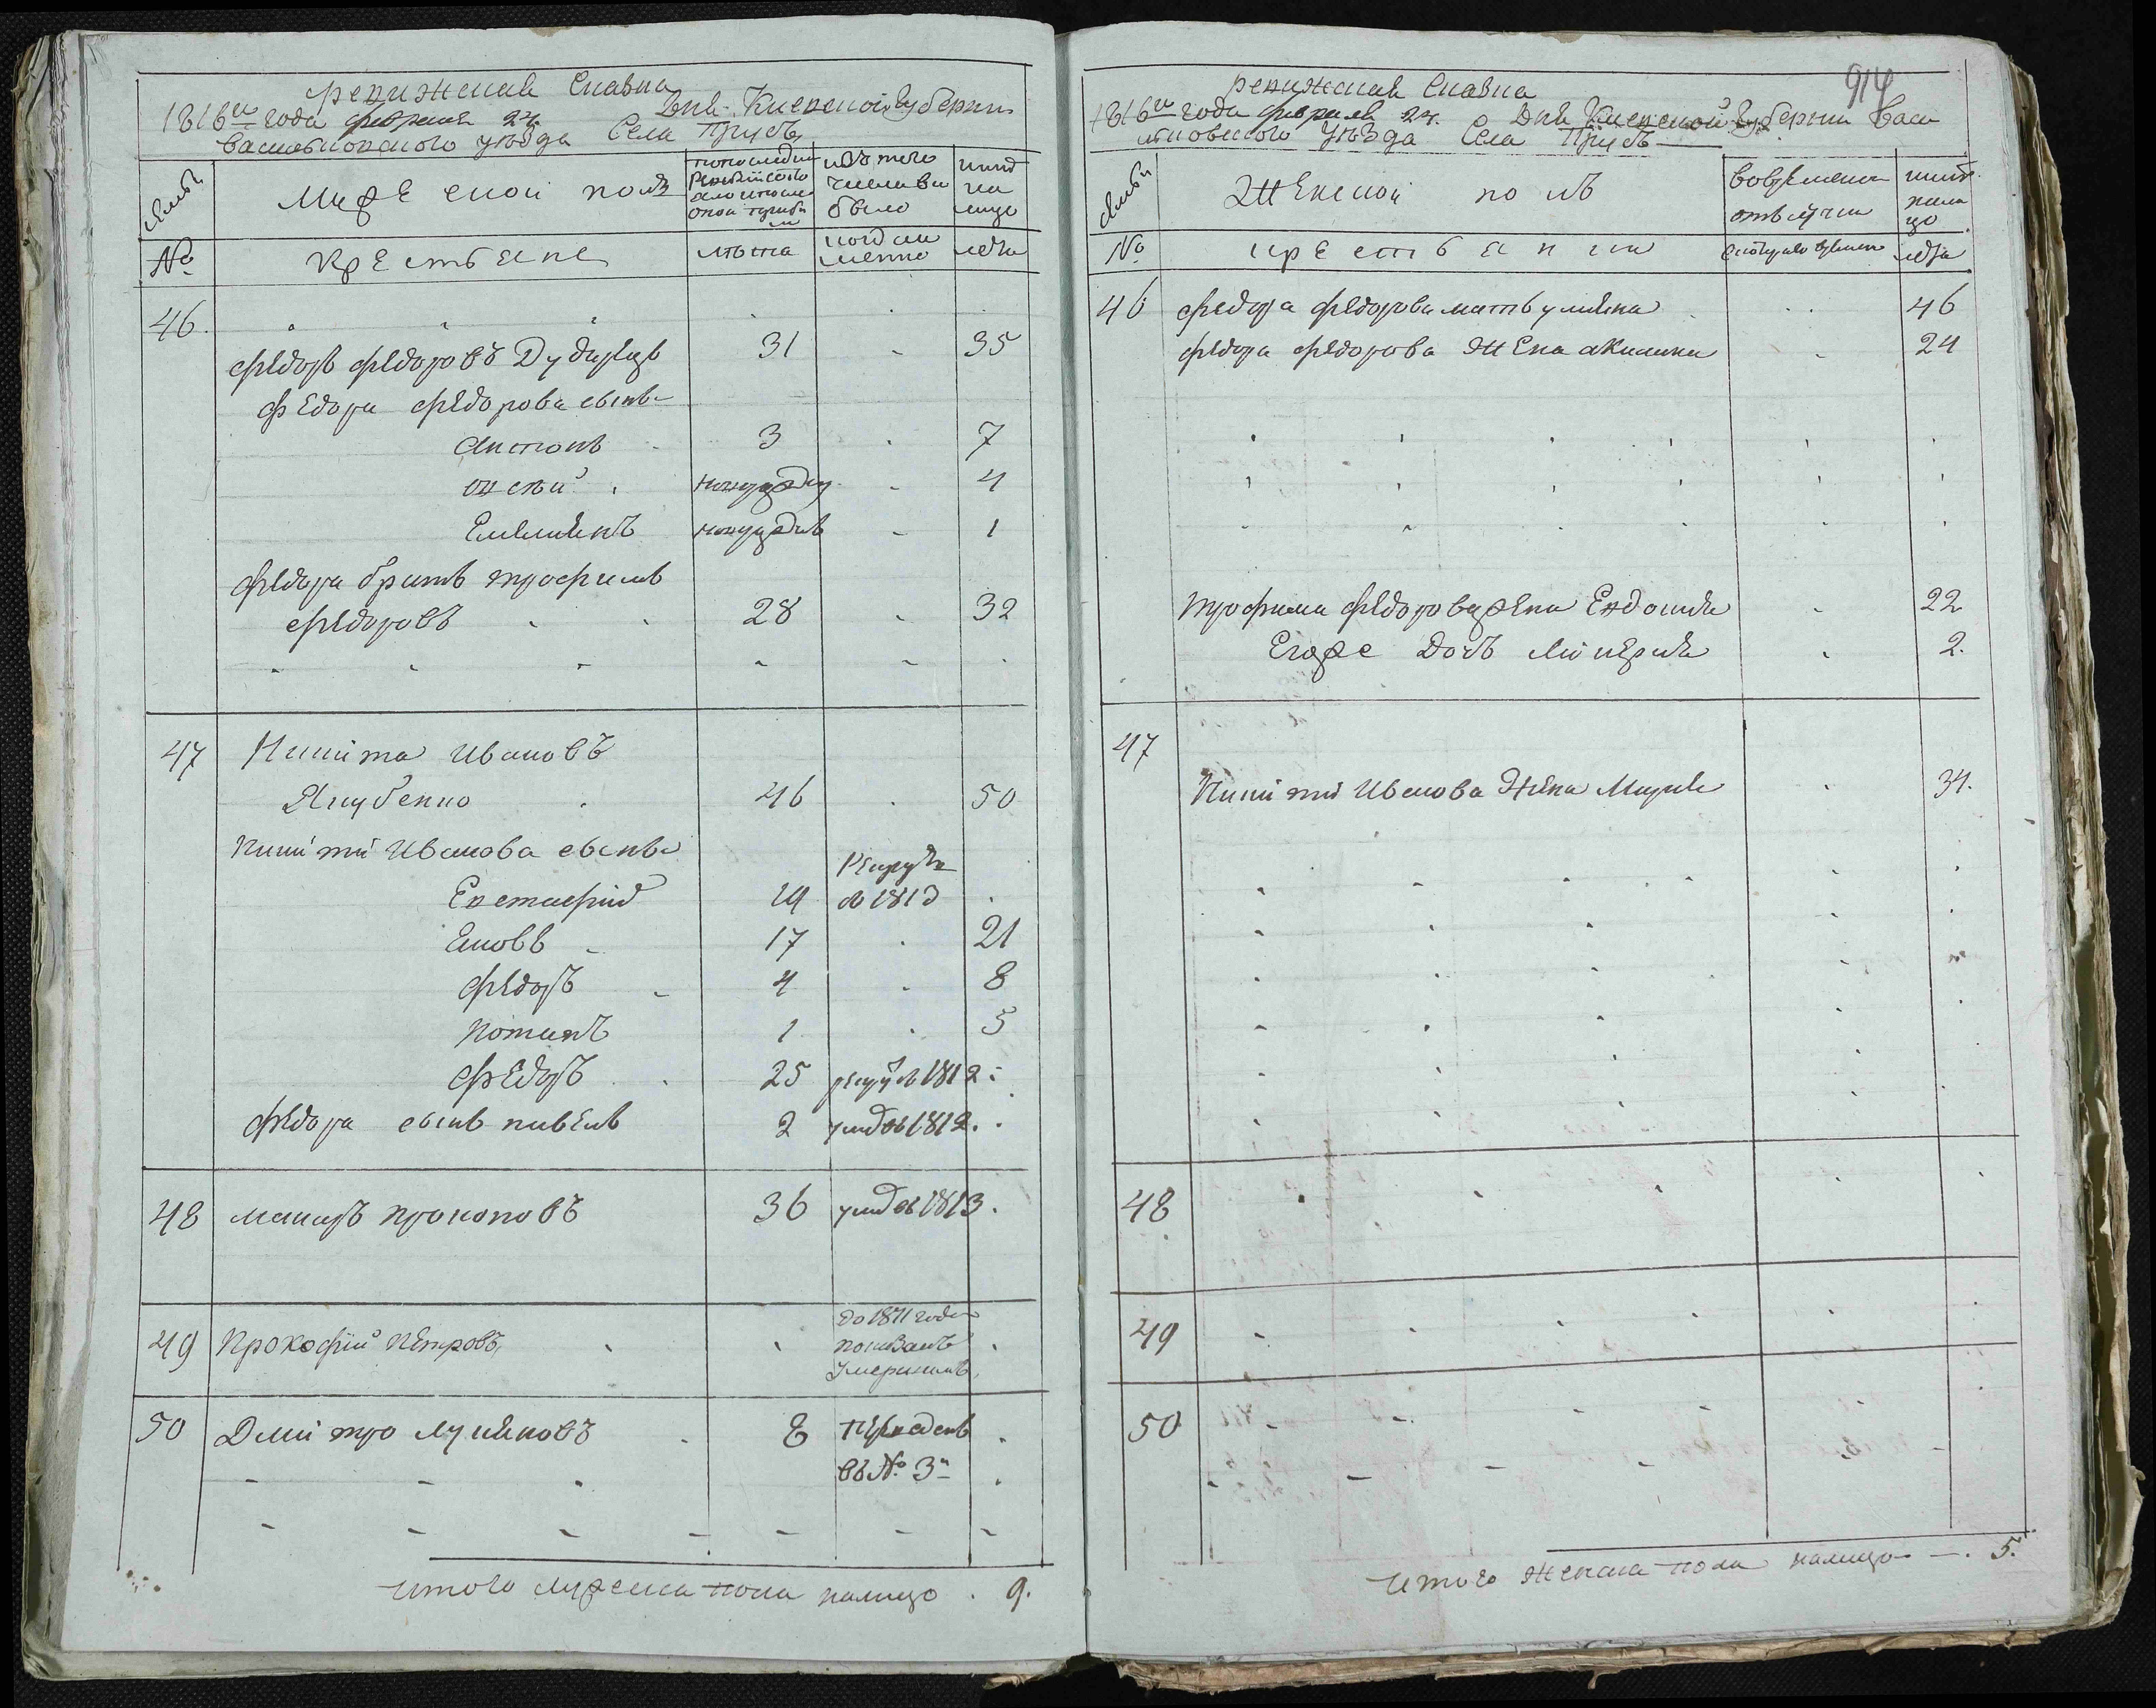 Ревижская Сказка
1816го года февраля 24 Дня Киевской Губернии
васильковского уезда Села Трусъ
семьи
Мужеской полъ
по последней ревизии состояло и после оной прибыли
изъ того числа выбыло
ныне на лицо
№
Крестьяне
лѣта
когда именно
лѣта
46
Федоръ Федоровъ Дударецъ 31 35
Федора Федорова сынъ
Антонъ 3 7
новорожден 4
Емельянъ новорожденъ 1
Федора братъ трофимъ
Федоровъ 28 32
47 Никита Ивановъ
Якубенко 46 50
Никиты Иванова сынъ
Рекрутъ
Евстафій 19 въ 181
Яковъ 17 21
Федоръ 4 8
Потапъ 1 5
Федоръ 25 рекру въ 1812
Федора сынъ павелъ 2 умре въ 1812
48 макаръ прокоповъ 36 умре въ 1813
до 1811 года
49 Прокофій Петровъ показанъ
Умершимъ
50 Дмитро Лукяновъ 8 переведенъ
въ № 3й
итого мужеска пола налицо 9.
914
ревижская Сказка
1816го года февраля 24 Дня Киевской Губернии Васи
лковского уѣзда Села Трусъ
семьи
Женской полъ
во временной отлучке
ныне налицо
№
крестьянки
с которого времени
лѣта
46 федора федорова мать ульяна 46
федора федорова жена акилина 24
трофима федорова жена Евдокия 22
Егоже дочь 2.
47
Никиты Иванова жена Мария 34.
48
49
50
итого женска пола налицо 5.